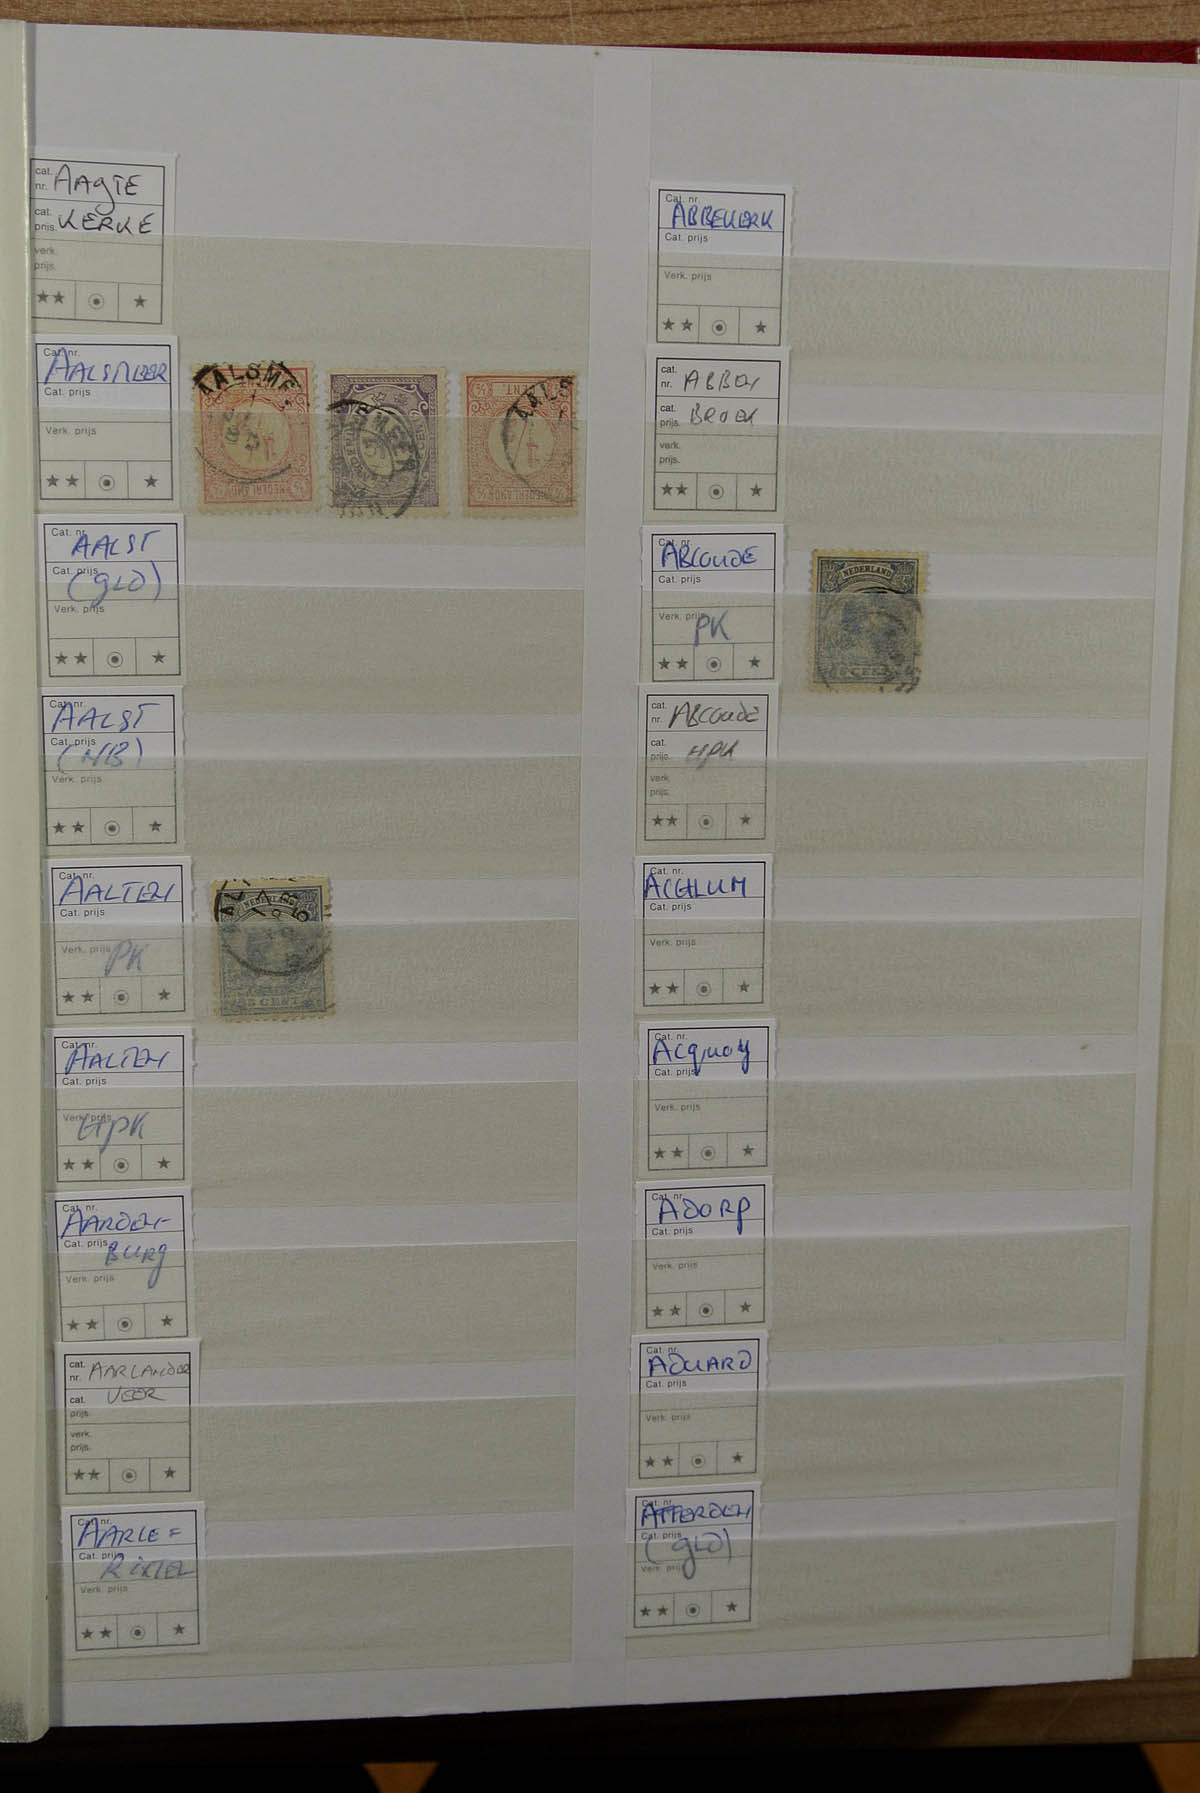 cat.
nr. AAgTE
cat.
prijs. KERKE
verk.
prijs.
Cat. nr.
AALSMEER
Cat. prijs
Verk. prijs
AALSME
NEDERLAND
SMEER
CENT
AALS
CENT
NEDERLAND
Cat. nr.
AALST
Cat. prijs
(gLD)
Verk. prijs
Cat. nr.
AALST
Cat. prijs
(NB)
Verk. prijs
Cat. nr.
AALTEN
Cat. prijs
Verk. prijs
PK
NEDERLAND
5 CENT
Cat. nr.
AALTEN
Cat. prijs
Verk. prijs
HPK
Cat. nr.
AARDEN-
Cat. prijs
BURg
Verk. prijs
cat.
nr. AARLANDER
cat.
prijs. VEER
verk.
prijs.
Cat. nr.
AARLE =
Cat. prijs
RIXTEL
Verk. prijs
Cat. nr.
ABBEKERK
Cat. prijs
Verk. prijs
cat.
nr. ABBEN
cat.
prijs. BROEK
verk.
prijs.
Cat. nr.
ABCOUDE
Cat. prijs
Verk. prijs
PK
NEDERLAND
5 CENT
cat.
nr. ABCOUDE
cat.
prijs. HPK
verk.
prijs.
Cat. nr.
ACHLUM
Cat. prijs
Verk. prijs
Cat. nr.
Acquoy
Cat. prijs
Verk. prijs
Cat. nr.
ADORP
Cat. prijs
Verk. prijs
Cat. nr.
ADUARD
Cat. prijs
Verk. prijs
Cat. nr.
AFFERDEN
Cat. prijs
(gLD)
Verk. prijs